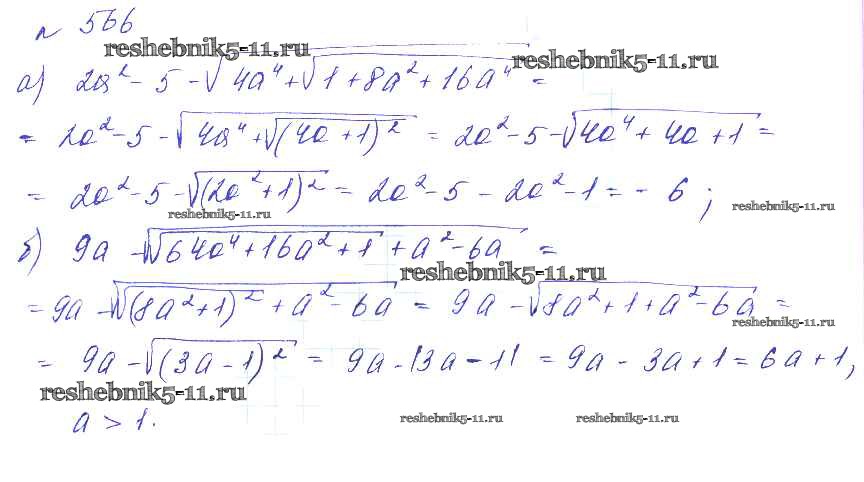 № 566
reshebnik5-11.ru
reshebnik5-11.ru
а) 2a² - 5 - √(4a⁴ + √(1 + 8a² + 16a⁴)) =
= 2a² - 5 - √(4a⁴ + √((4a + 1)²)) = 2a² - 5 - √(4a⁴ + 4a + 1) =
= 2a² - 5 - √((2a² + 1)²) = 2a² - 5 - 2a² - 1 = - 6 ;
reshebnik5-11.ru
reshebnik5-11.ru
б) 9a - √(√(64a⁴ + 16a² + 1) + a² - 6a) =
reshebnik5-11.ru
= 9a - √(√((8a² + 1)²) + a² - 6a) = 9a - √(8a² + 1 + a² - 6a) =
reshebnik5-11.ru
= 9a - √((3a - 1)²) = 9a - |3a - 1| = 9a - 3a + 1 = 6a + 1,
reshebnik5-11.ru
a > 1.
reshebnik5-11.ru
reshebnik5-11.ru